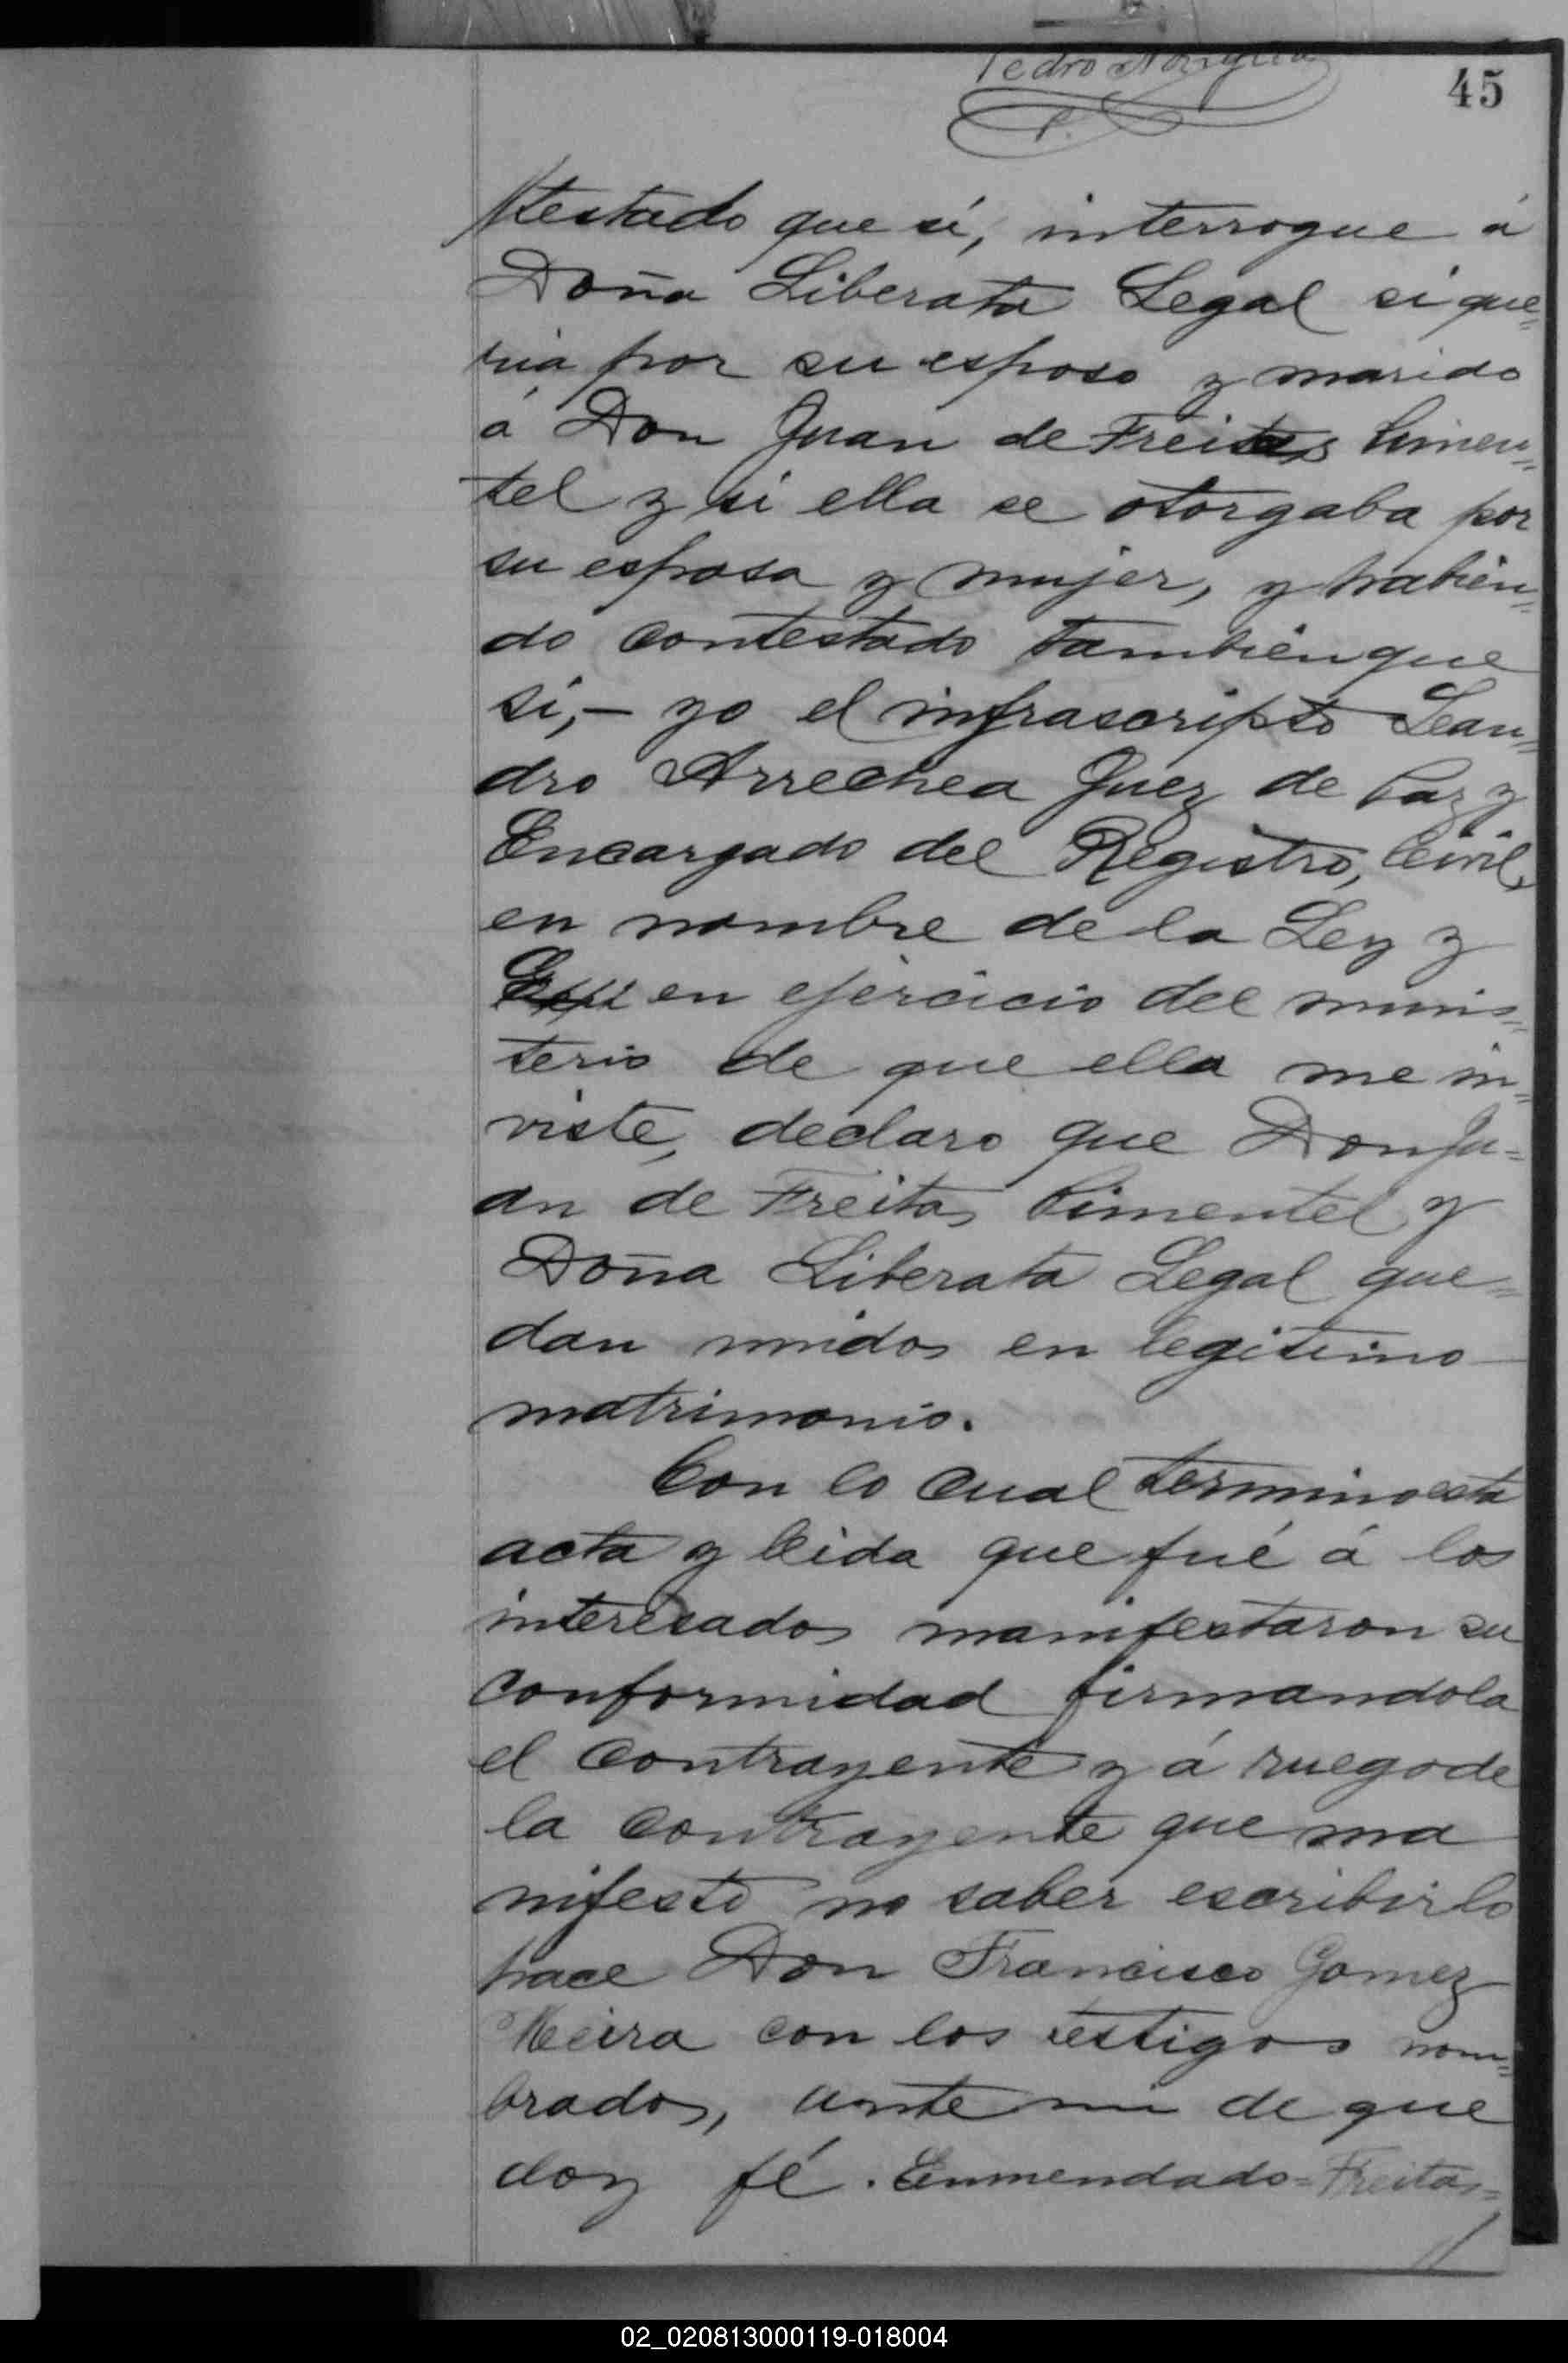 Pedro
45
testado que sí, interrogue á
Doña Liberata Legal si que=
ria por su esposo y marido
á Don Juan de Freitas Pimen=
tel y si ella se otorgaba por
su esposa y mujer, y habién=
do contestado tambien que
sí,- yo el infrascripto Lean=
dro Arrechea Juez de Paz y
Encargado del Registro, Civil,
en nombre de la Ley y
en ejercicio del minis=
terio de que ella me in=
viste, declaro que Don Ju=
an de Freitas Pimentel y
Doña Liberata Legal que=
dan unidos en legitimo
matrimonio.
Con lo cual termino esta
acta y leida que fué á los
interesados manifestaron su
conformidad firmandola
el contrayente y á ruego de
la contrayente que ma
nifestó no saber escribir lo
hace Don Francisco Gomez
Neira con los testigos nom=
brados, ante mi de que
doy fé. Enmendado=Freitas=
02_020813000119-018004